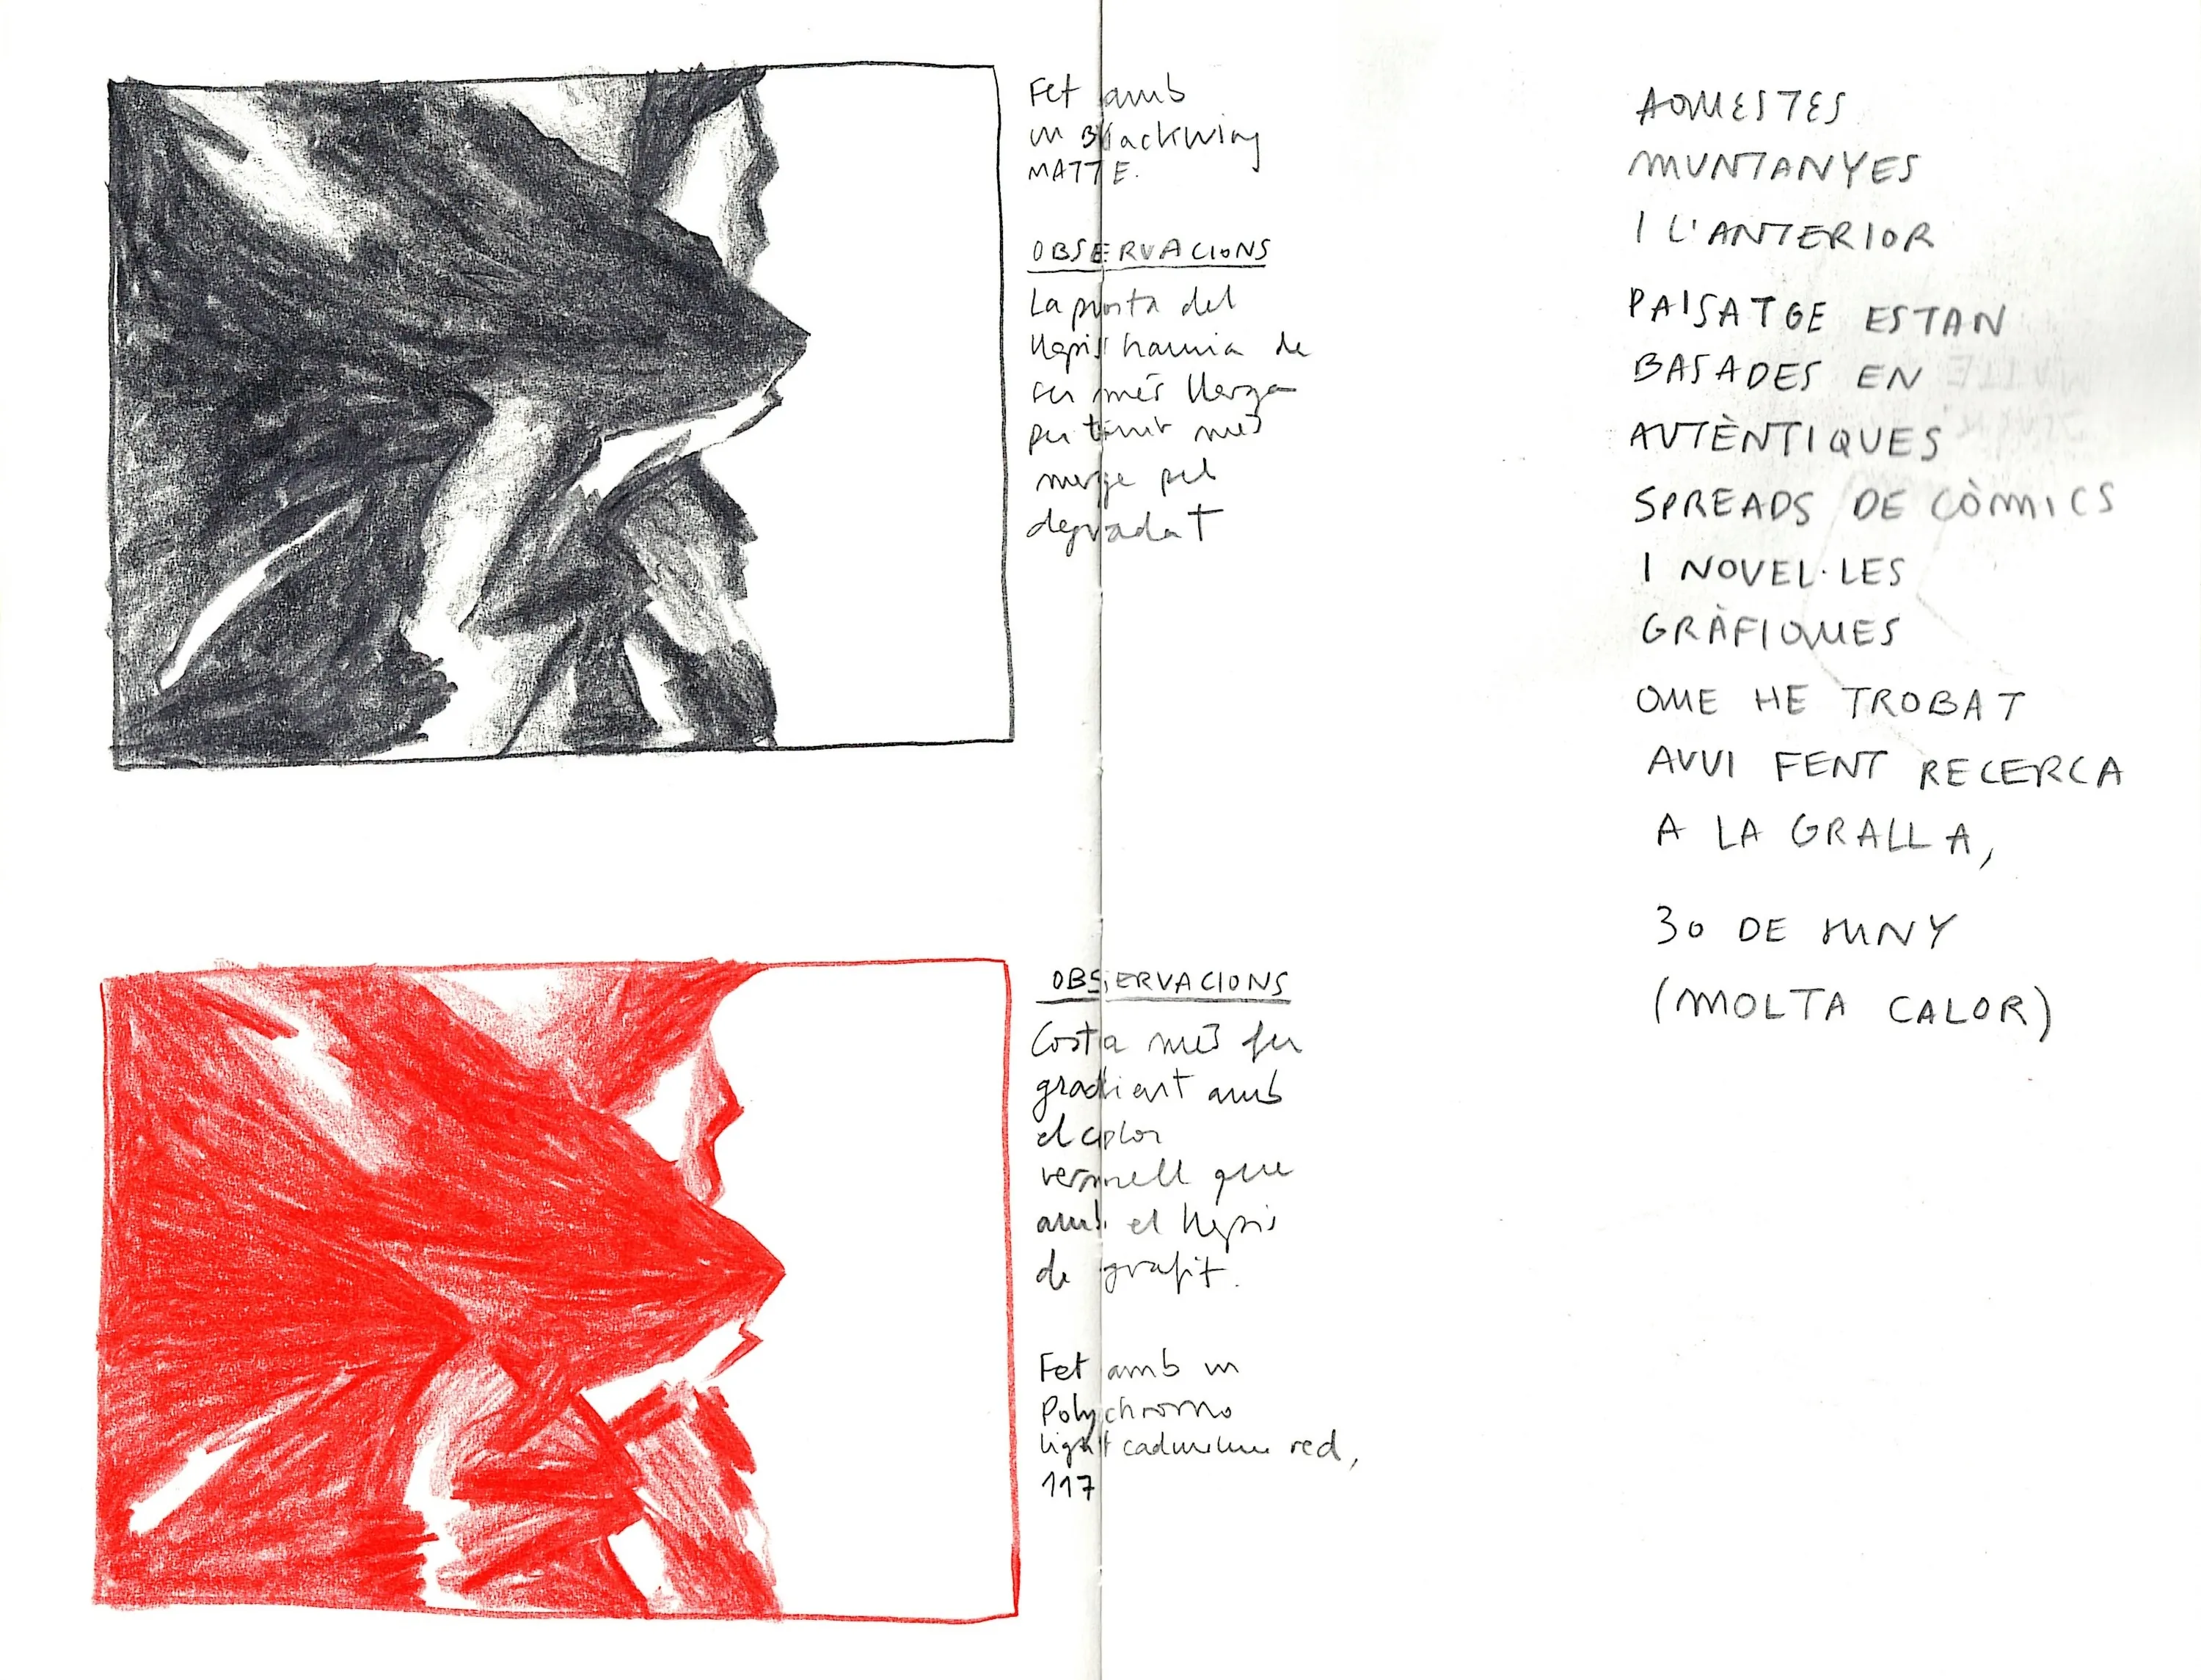 Fet amb
un Blackwing
MATTE.
OBSERVACIONS
La punta del
llapis hauria de
ser més llarga
per tenir més
marge pel
degradat
OBSERVACIONS
Costa més fer
gradient amb
el color
vermell que
amb el llapis
de grafit.
Fet amb un
Polychromo
light cadmium red,
117
AQUESTES
MUNTANYES
I L'ANTERIOR
PAISATGE ESTAN
BASADES EN
AUTÈNTIQUES
SPREADS DE CÒMICS
I NOVEL·LES
GRÀFIQUES
QUE HE TROBAT
AVUI FENT RECERCA
A LA GRALLA,
30 DE JUNY
(MOLTA CALOR)